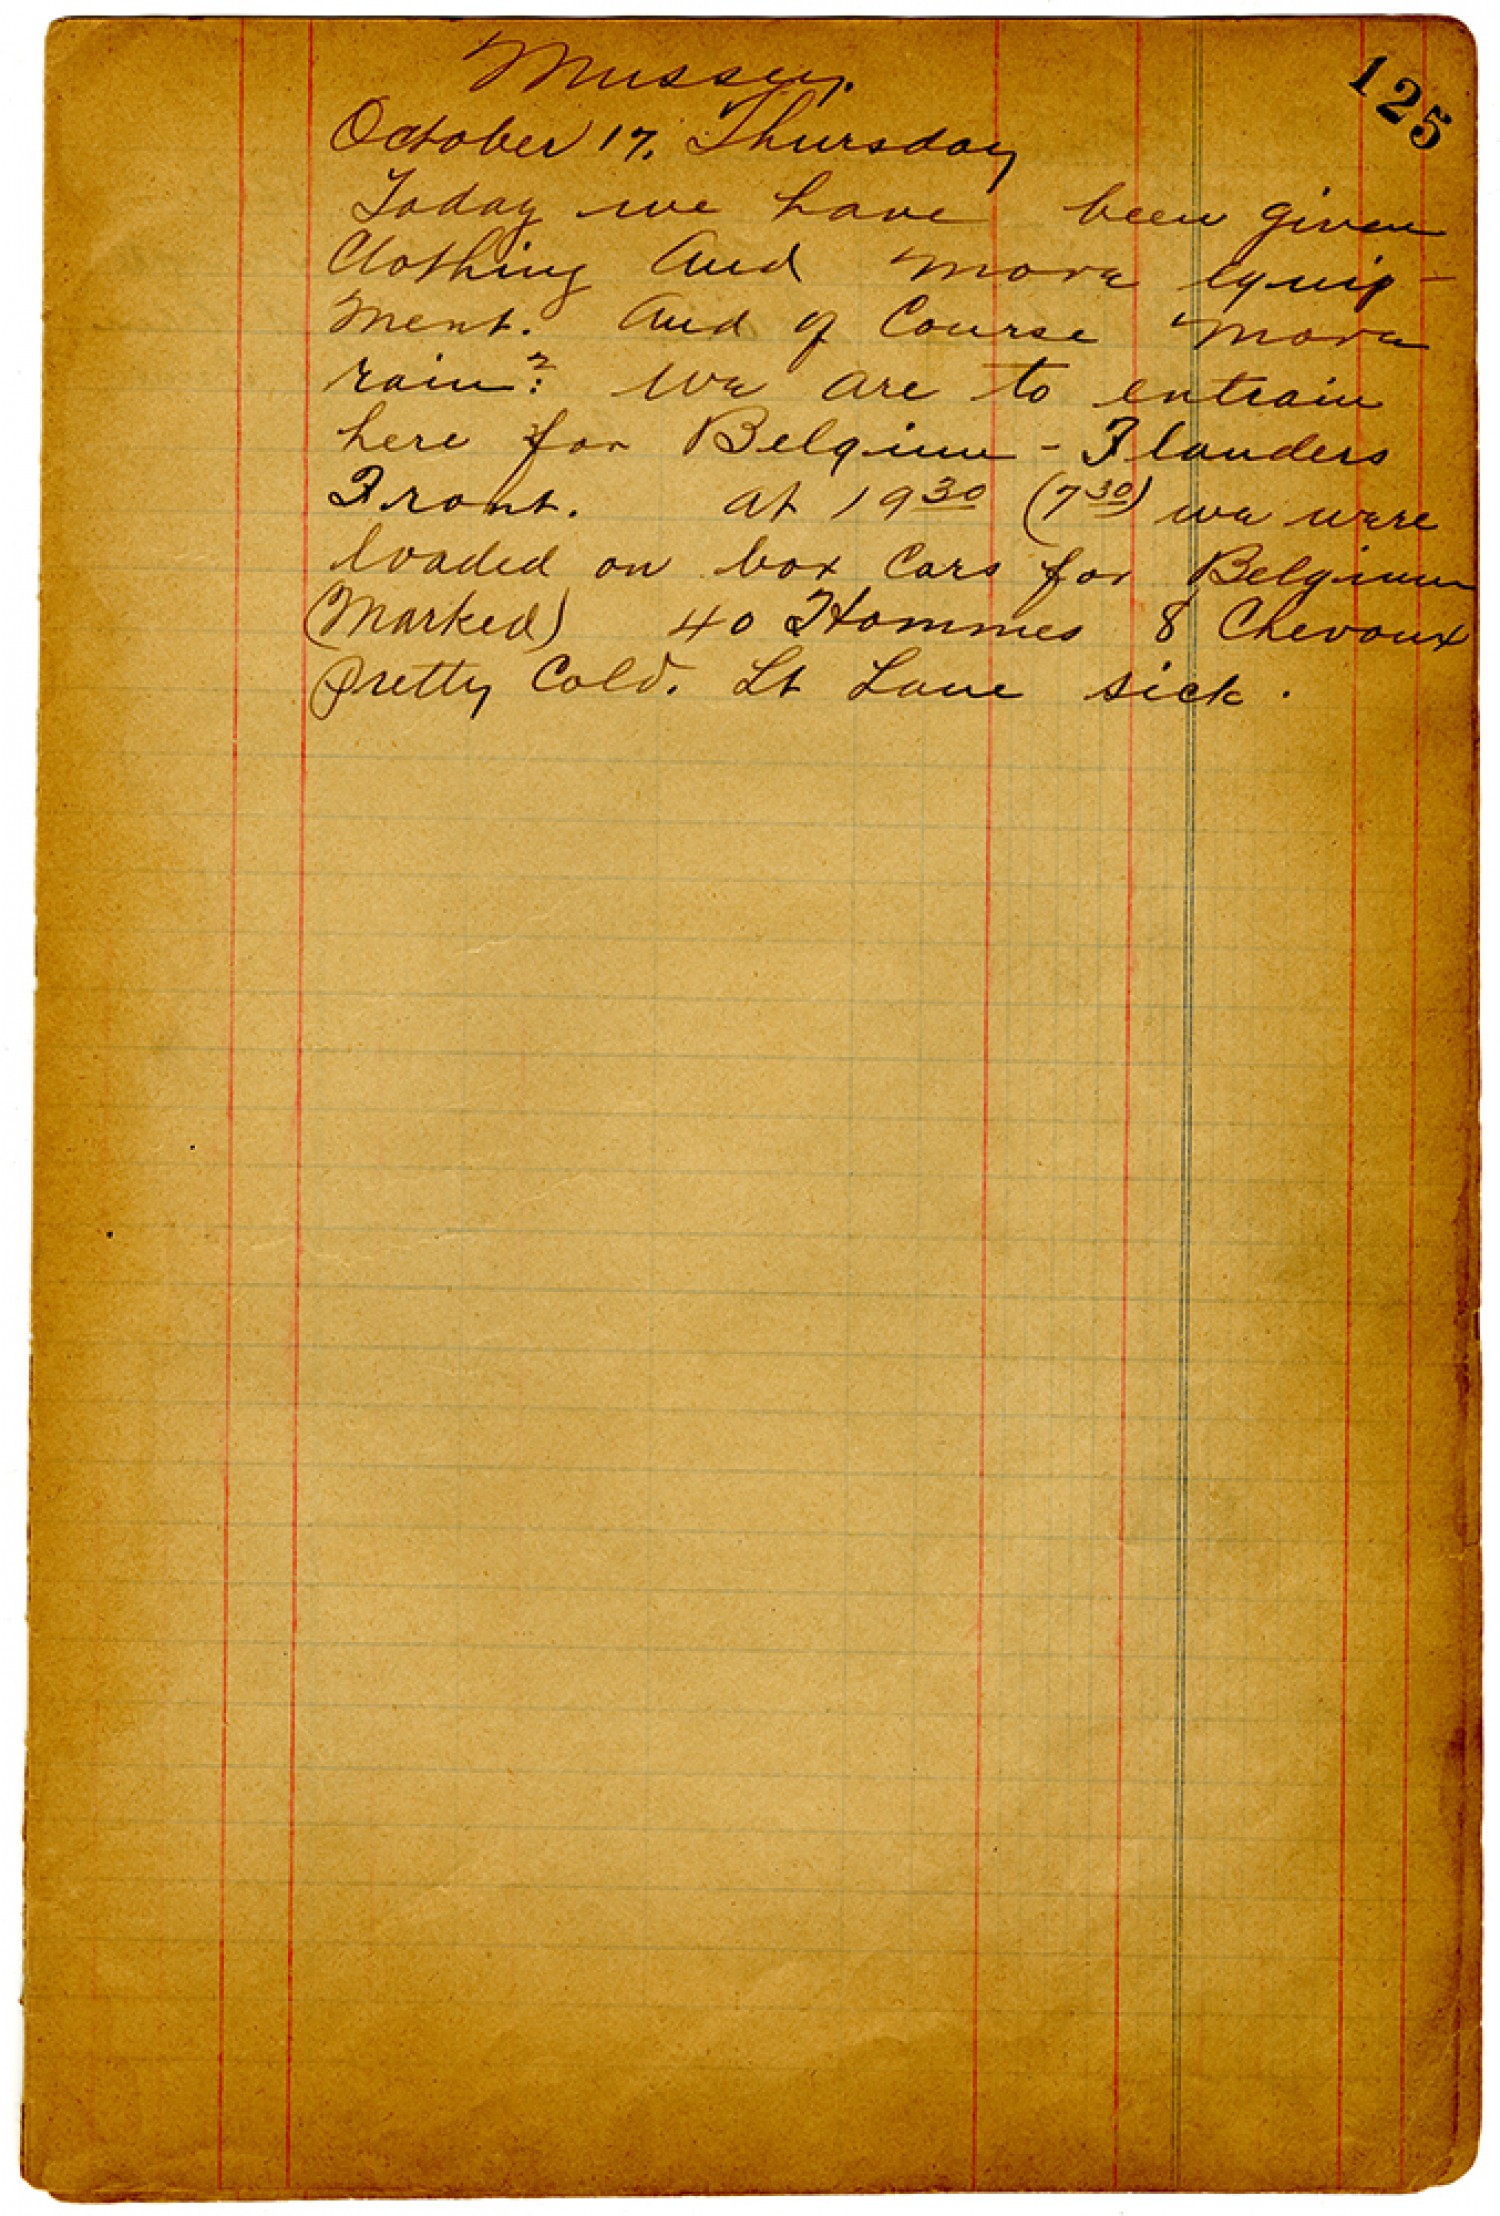 125
Mussey.
October 17. Thursday
Today we have been given
Clothing And more equip-
ment. And of Course more
rain? We are to entrain
here for Belgium - Flanders
Front. At 19 30 (7 30) we were
loaded on box Cars for Belgium
(Marked) 40 Hommes 8 Chevoux
Pretty Cold. Lt Lane sick.